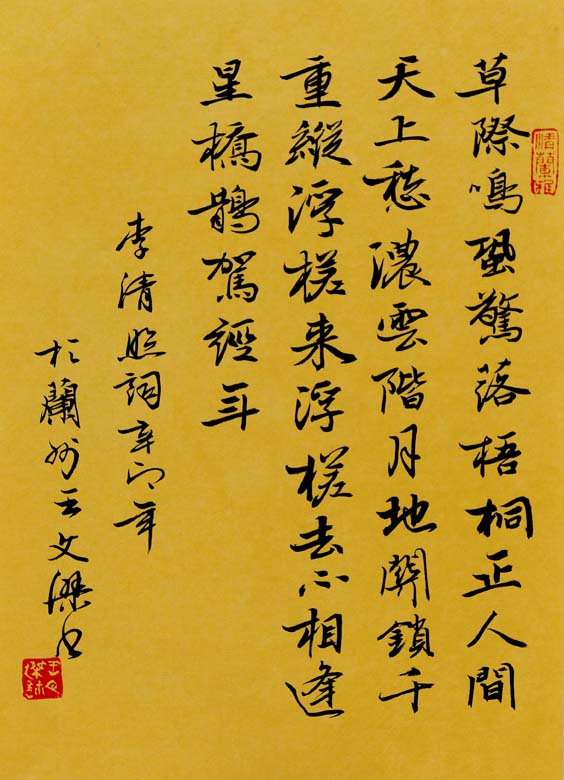 草際鳴蛩驚落梧桐正人間
天上愁濃雲階月地關鎖千
重縱浮槎来浮槎去不相逢
星橋鵲駕經年
李清照詞辛卯年
於蘭州王文傑書